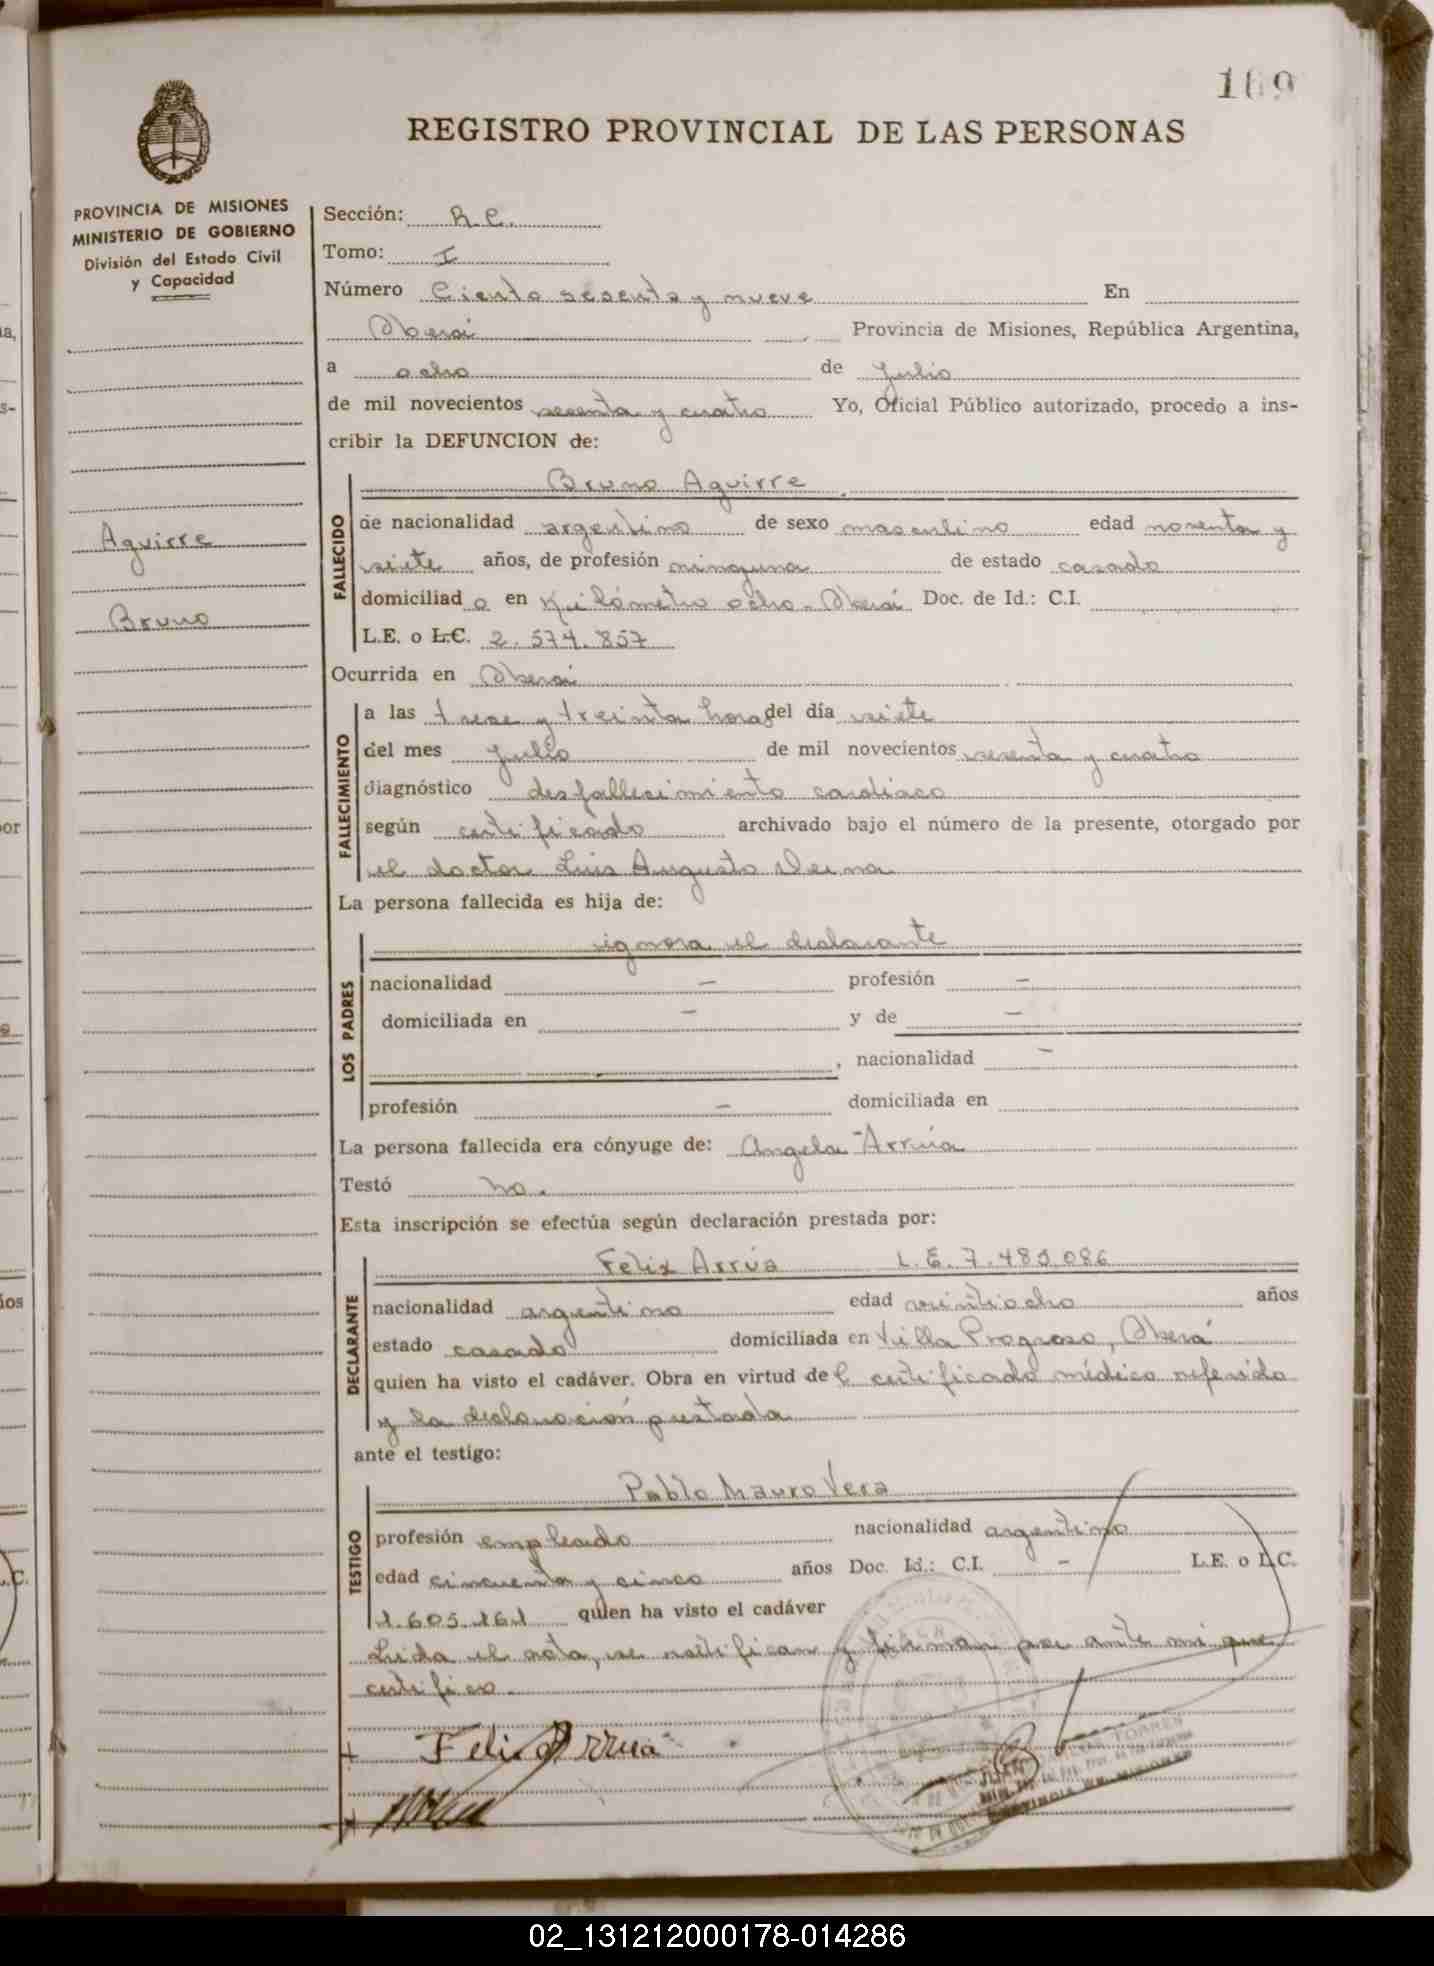 169
REGISTRO PROVINCIAL DE LAS PERSONAS
PROVINCIA DE MISIONES
MINISTERIO DE GOBIERNO
División del Estado Civil
y Capacidad
Aguirre
Bruno
Sección: R.C.
Tomo: I
Número Ciento sesenta y nueve En
Oberá Provincia de Misiones, República Argentina,
a ocho de julio
de mil novecientos sesenta y cuatro Yo, Oficial Público autorizado, procedo a ins-
cribir la DEFUNCION de:
FALLECIDO
Bruno Aguirre
de nacionalidad argentino de sexo masculino edad noventa y
siete años, de profesión ninguna de estado casado
domiciliado en Kilómetro ocho - Oberá Doc. de Id.: C.I.
L.E. o L.C. 2.574.857
Ocurrida en Oberá
FALLECIMIENTO
a las trece y treinta horas del día siete
del mes julio de mil novecientos sesenta y cuatro
diagnóstico desfallecimiento cardíaco
según certificado archivado bajo el número de la presente, otorgado por
el doctor Luis Augusto
La persona fallecida es hija de:
LOS PADRES
ignora el declarante
nacionalidad — profesión —
domiciliada en — y de —
, nacionalidad —
profesión — domiciliada en
La persona fallecida era cónyuge de: Angela Arrúa
Testó no.
Esta inscripción se efectúa según declaración prestada por:
DECLARANTE
Felix Arrúa L.E. 7.483.086
nacionalidad argentino edad veintiocho años
estado casado domiciliada en Villa Progreso, Oberá
quien ha visto el cadáver. Obra en virtud del certificado médico referido
y la declaración prestada
ante el testigo:
TESTIGO
Pablo Mauro Vera
profesión empleado nacionalidad argentino
edad cincuenta y cinco años Doc. Id.: C.I. — L.E. o L.C.
1.605.161 quien ha visto el cadáver
Leida el acta, se ratifican y firman por ante mi que
certifico.
Felix Arrua
TORRES
02_131212000178-014286